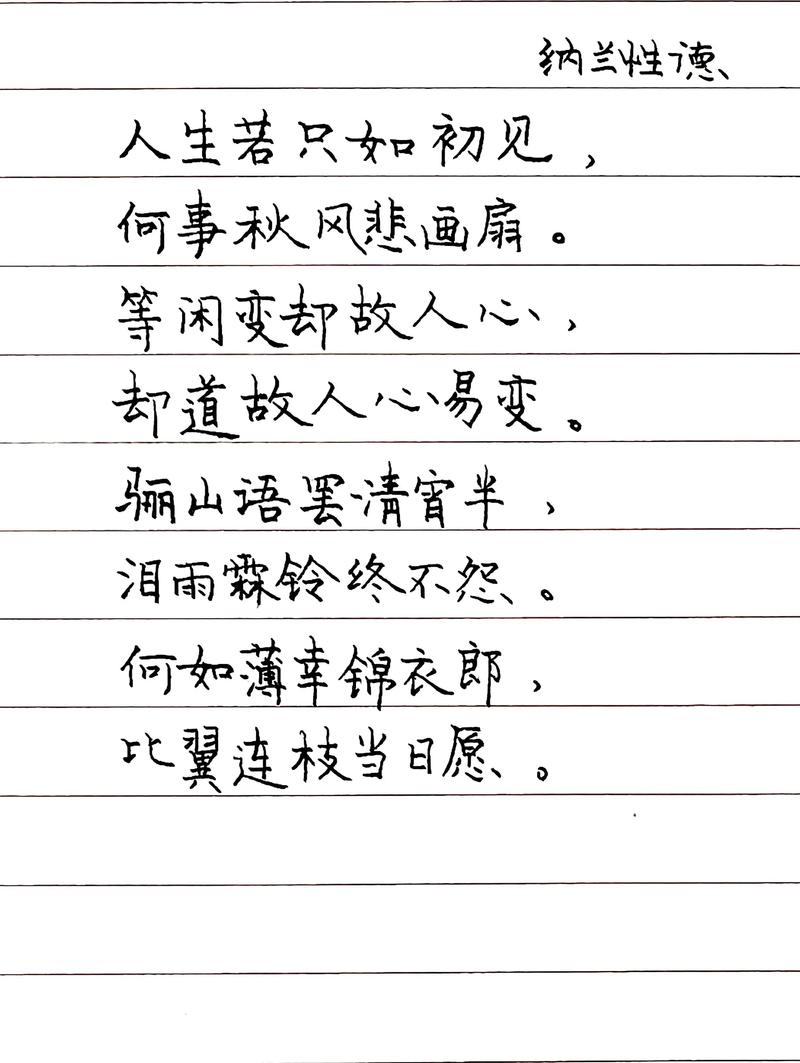 纳兰性德
人生若只如初见，
何事秋风悲画扇。
等闲变却故人心，
却道故人心易变。
骊山语罢清宵半，
泪雨霖铃终不怨。
何如薄幸锦衣郎，
比翼连枝当日愿。